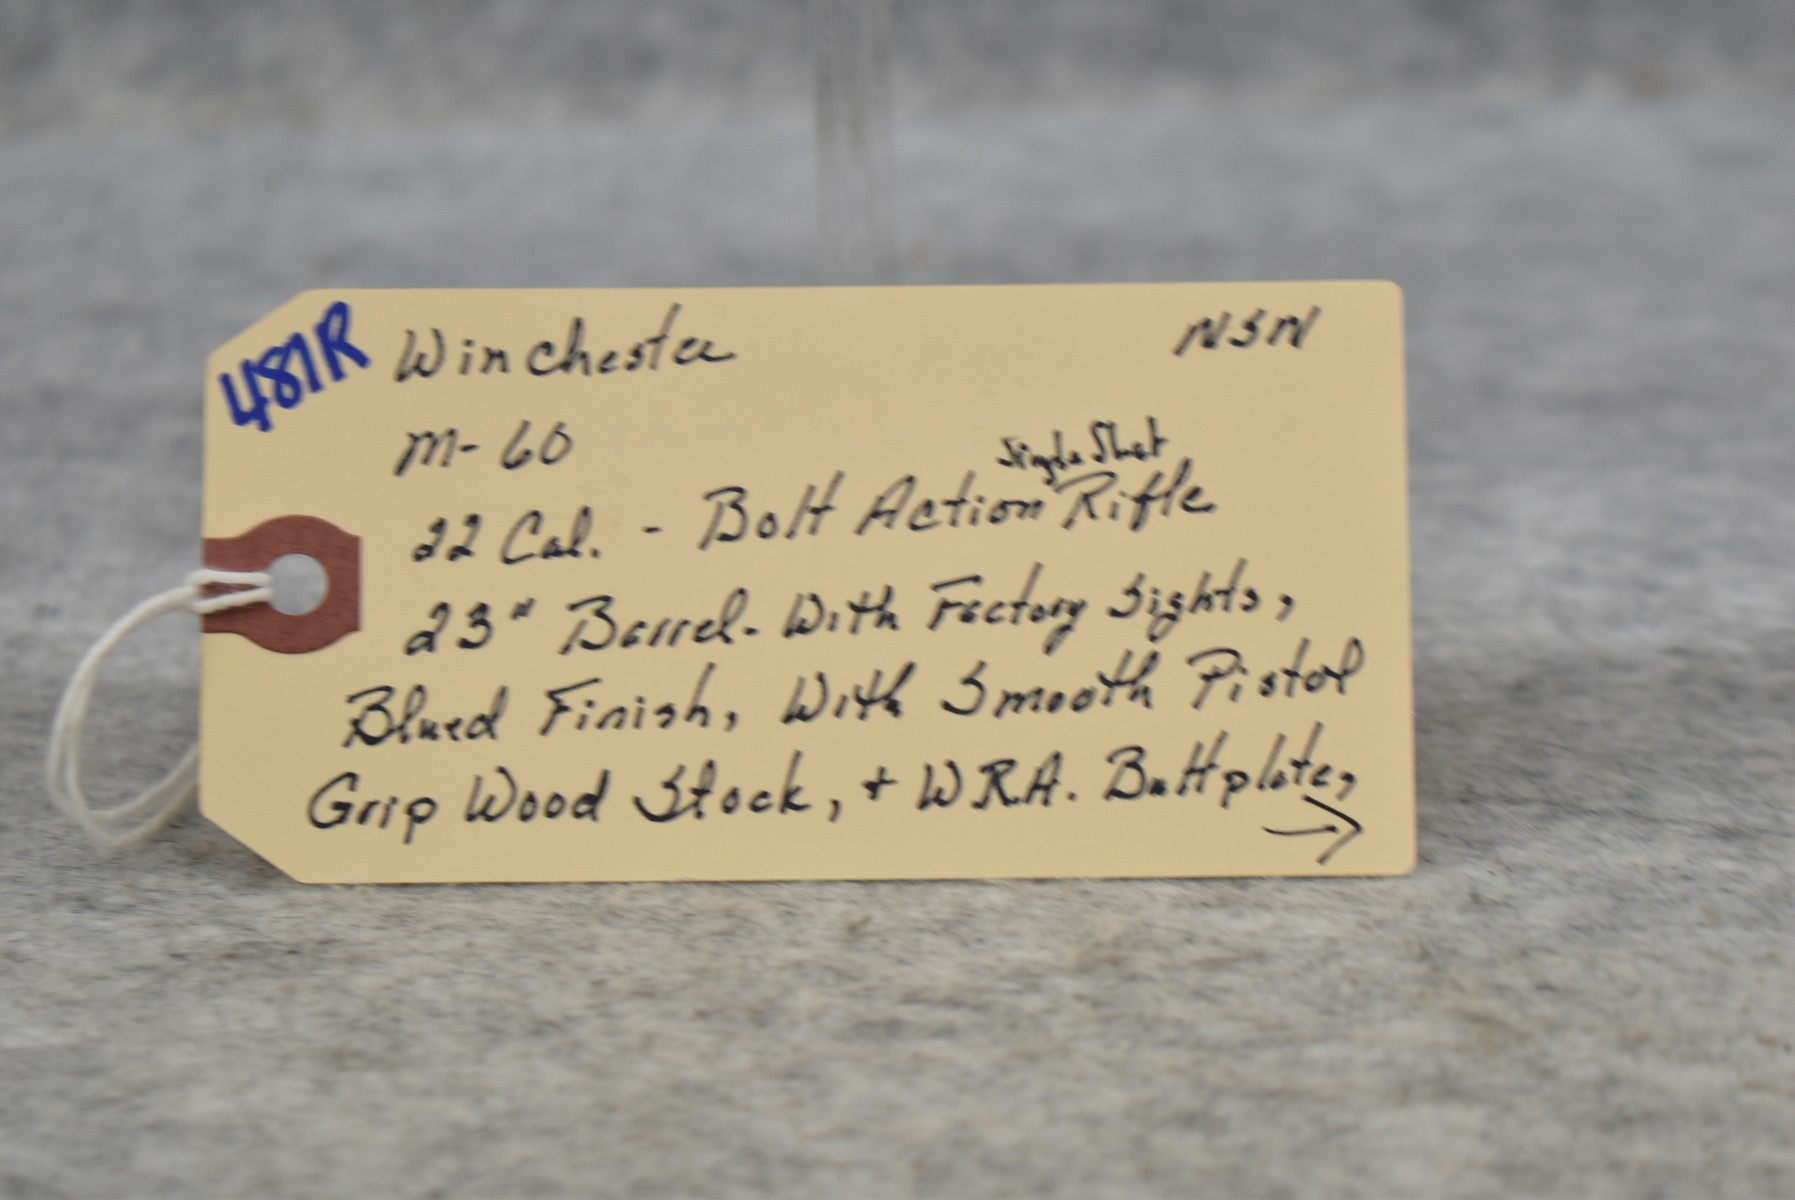 487R Winchester NSN
M-60
Single Shot
22 Cal. - Bolt Action Rifle
23" Barrel. With Factory Sights,
Blued Finish, With Smooth Pistol
Grip Wood Stock, + W.R.A. Buttplate,
→